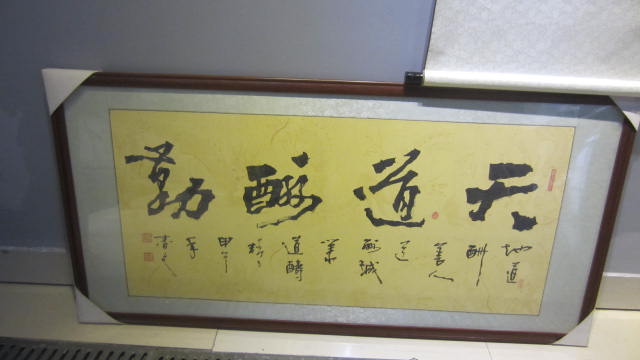 天道酬勤
地道酬善人道酬誠業道酬精甲午年書